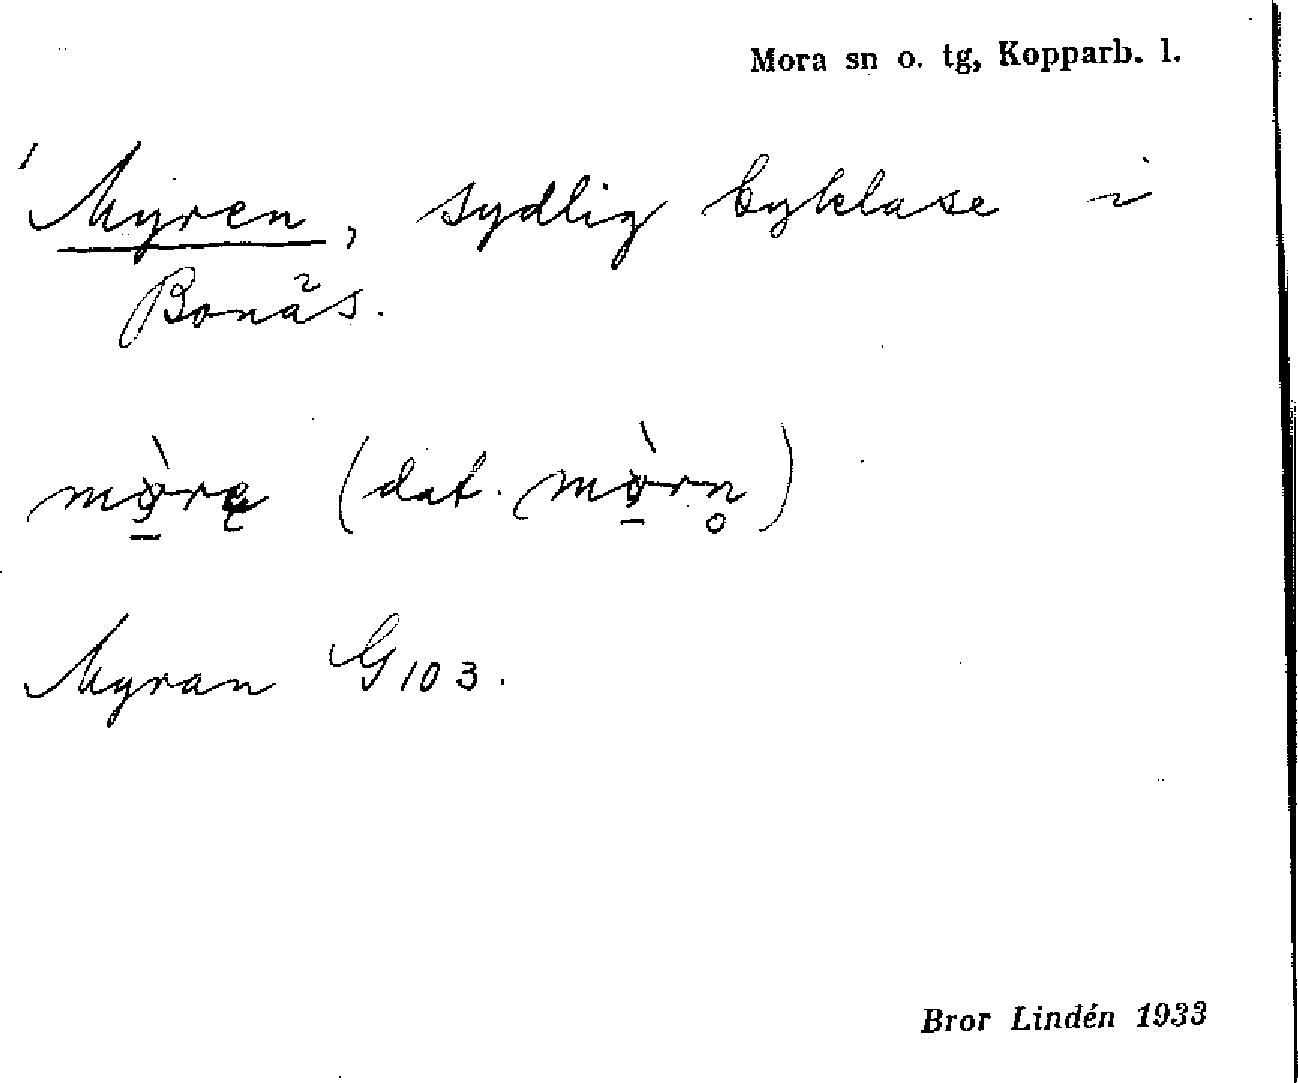 Mora sn o. tg, Kopparb. l.
Myren, sydlig byklase i
Bonäs.
(dat.
Myran G 103.
Bror Lindén 1933